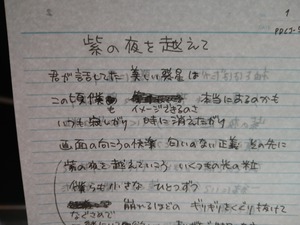 紫の夜を越えて
君が話してた 美しい惑星は
この僕も イメージできるのさ 本当にあるのかも
いつも寂しがり 時に消えたがり
画面の向こうの快楽 匂いのない正義 その先に
紫の夜を越えていこう いくつもの光の粒
僕らも小さな ひとつずつ
なぐさめで 崩れるほどの ギリギリをくぐり抜けて